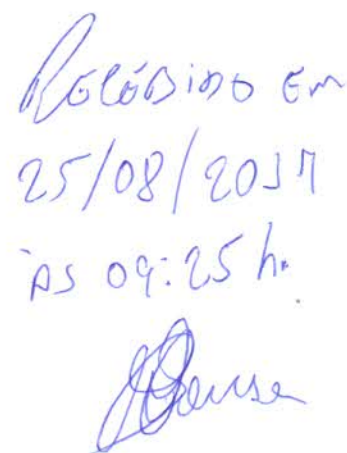 RECEBIDO EM
25/08/2017
ÀS 09:25 h.